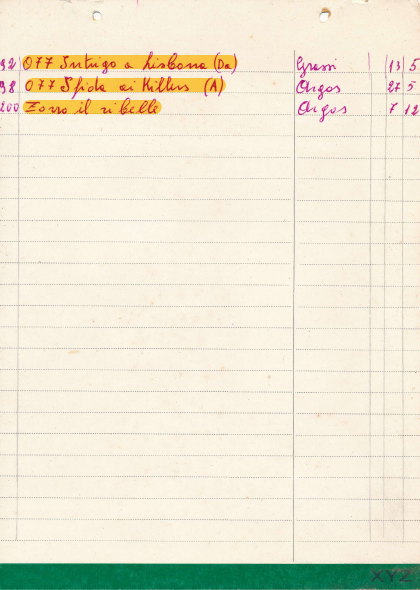 92 077 Intrigo a Lisbona (Da) Grassi 13 5
98 077 Sfida ai Killers (A) Argos 27 5
200 Zorro il ribelle Argos 7 12
XYZ